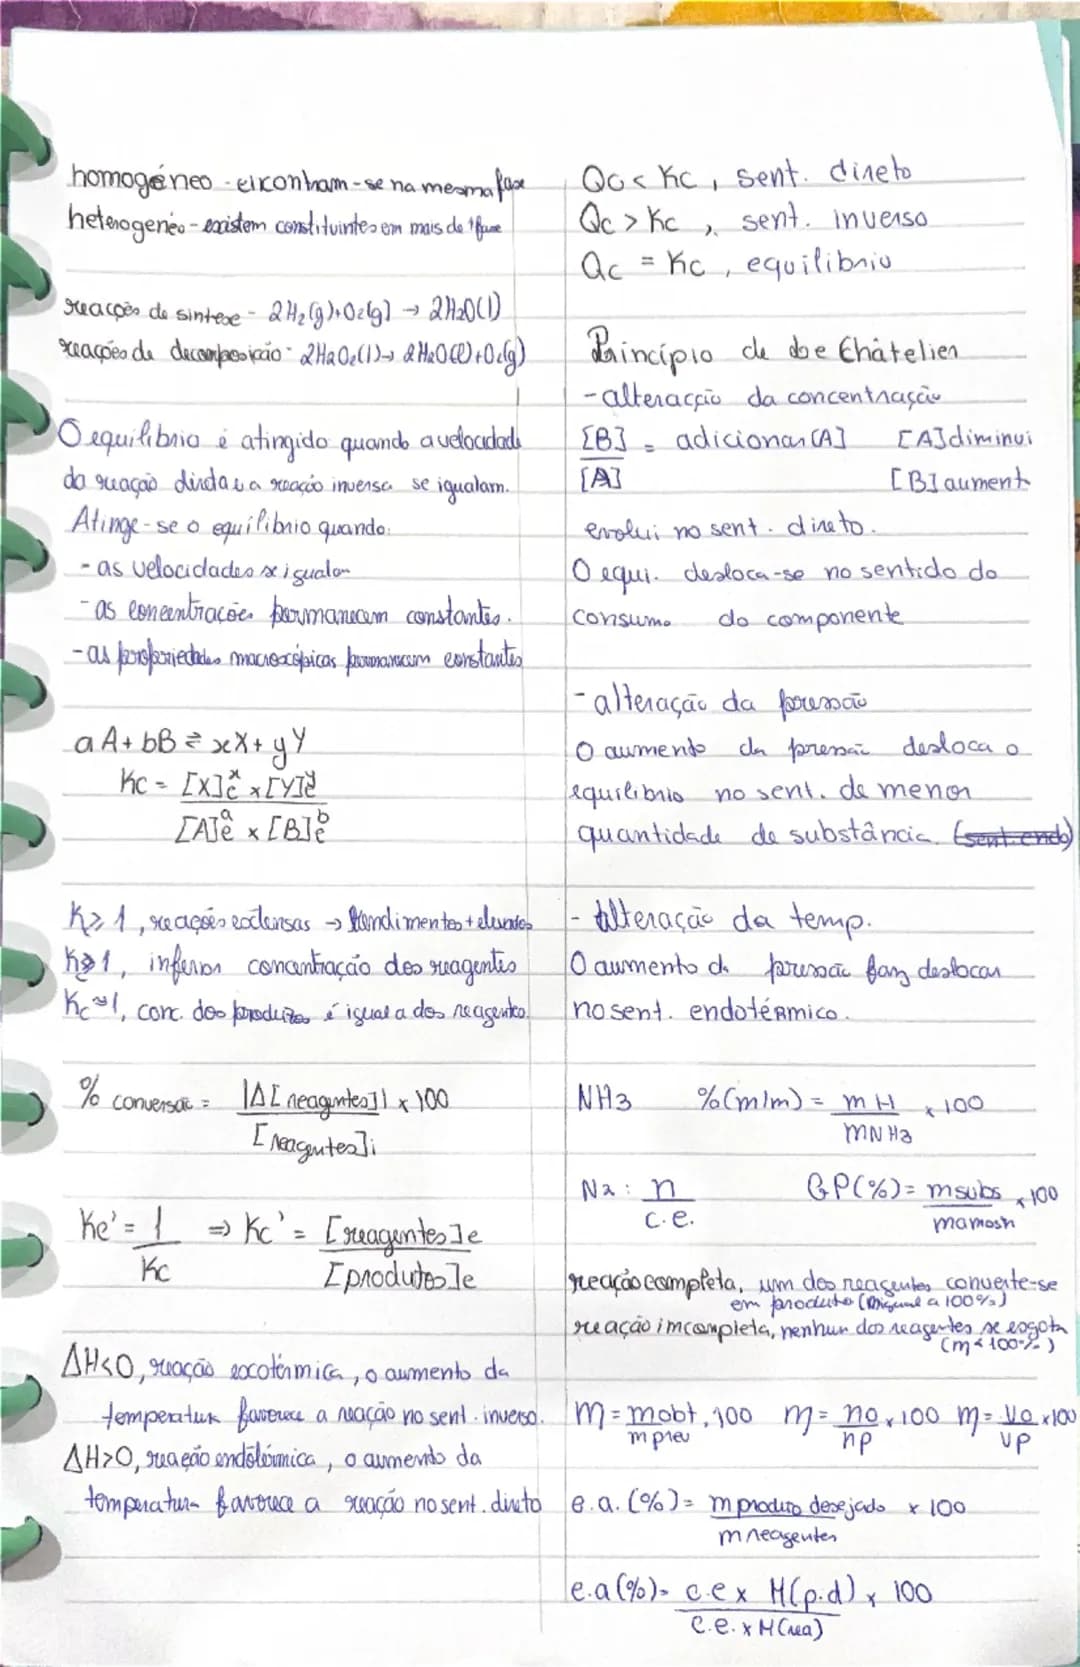 homogéneo - eiconham-se na mesma fase
heterogenéo - existem constituintes em mais de 1 fase
reacções de sintese - 2H₂(g)+O₂(g) → 2H₂O(l)
reações de decomposição - 2H₂O₂(l)→ 2H₂O(l)+O₂(g)
O equilibrio é atingido quando a velocidade
da reação direta e a reação inversa se igualam.
Atinge-se o equilibrio quando:
- as velocidades se igualam
- as concentrações permanecem constantes.
- as propriedades macroscópicas permanecem constantes
aA + bB ⇌ xX + yY
Kc = [X]ₑˣ × [Y]ₑʸ
[A]ₑᵃ × [B]ₑᵇ
K> 1, reações extensas → Rendimentos + elevados
1, inferior concentração dos reagentes
Kc≈1, conc. dos produtos é igual a dos reagentes.
% conversão = |Δ[reagentes]| × 100
[reagentes]i
Kc' = 1 ⇒ Kc' = [reagentes]e
Kc [produtos]e
ΔH<0, reação exotérmica, o aumento da
temperatura favorece a reação no sent. inverso.
ΔH>0, reação endotérmica, o aumento da
temperatura favorece a reação no sent. direto
Qc < Kc, sent. direto
Qc > Kc, sent. inverso
Qc = Kc, equilibrio
Princípio de Châtelier
- alteracção da concentração
[B] = adicionar [A] [A] diminui
[A] [B] aument
evolui no sent. direto.
O equi. desloca-se no sentido do
consumo do componente
- alteração da pressão
O aumento da pressão desloca o
equilibrio no sent. de menor
quantidade de substância. (sent. endo)
- alteração da temp.
O aumento da pressão faz deslocar
no sent. endotérmico.
NH3 %(m/m) = mH × 100
mNH3
N₂: n GP(%) = msubs × 100
c.e. mamosh
reação completa, um dos reagentes converte-se
em produto (η igual a 100%)
reação imcompleta, nenhum dos reagentes se esgota
(η < 100%)
η = mobt. 100 η = no × 100 η = Vo × 100
mprev np Vp
e.a. (%) = m produto desejado × 100
m reagentes
e.a (%) = c.e x M(p.d) x 100
c.e. x M(rea)